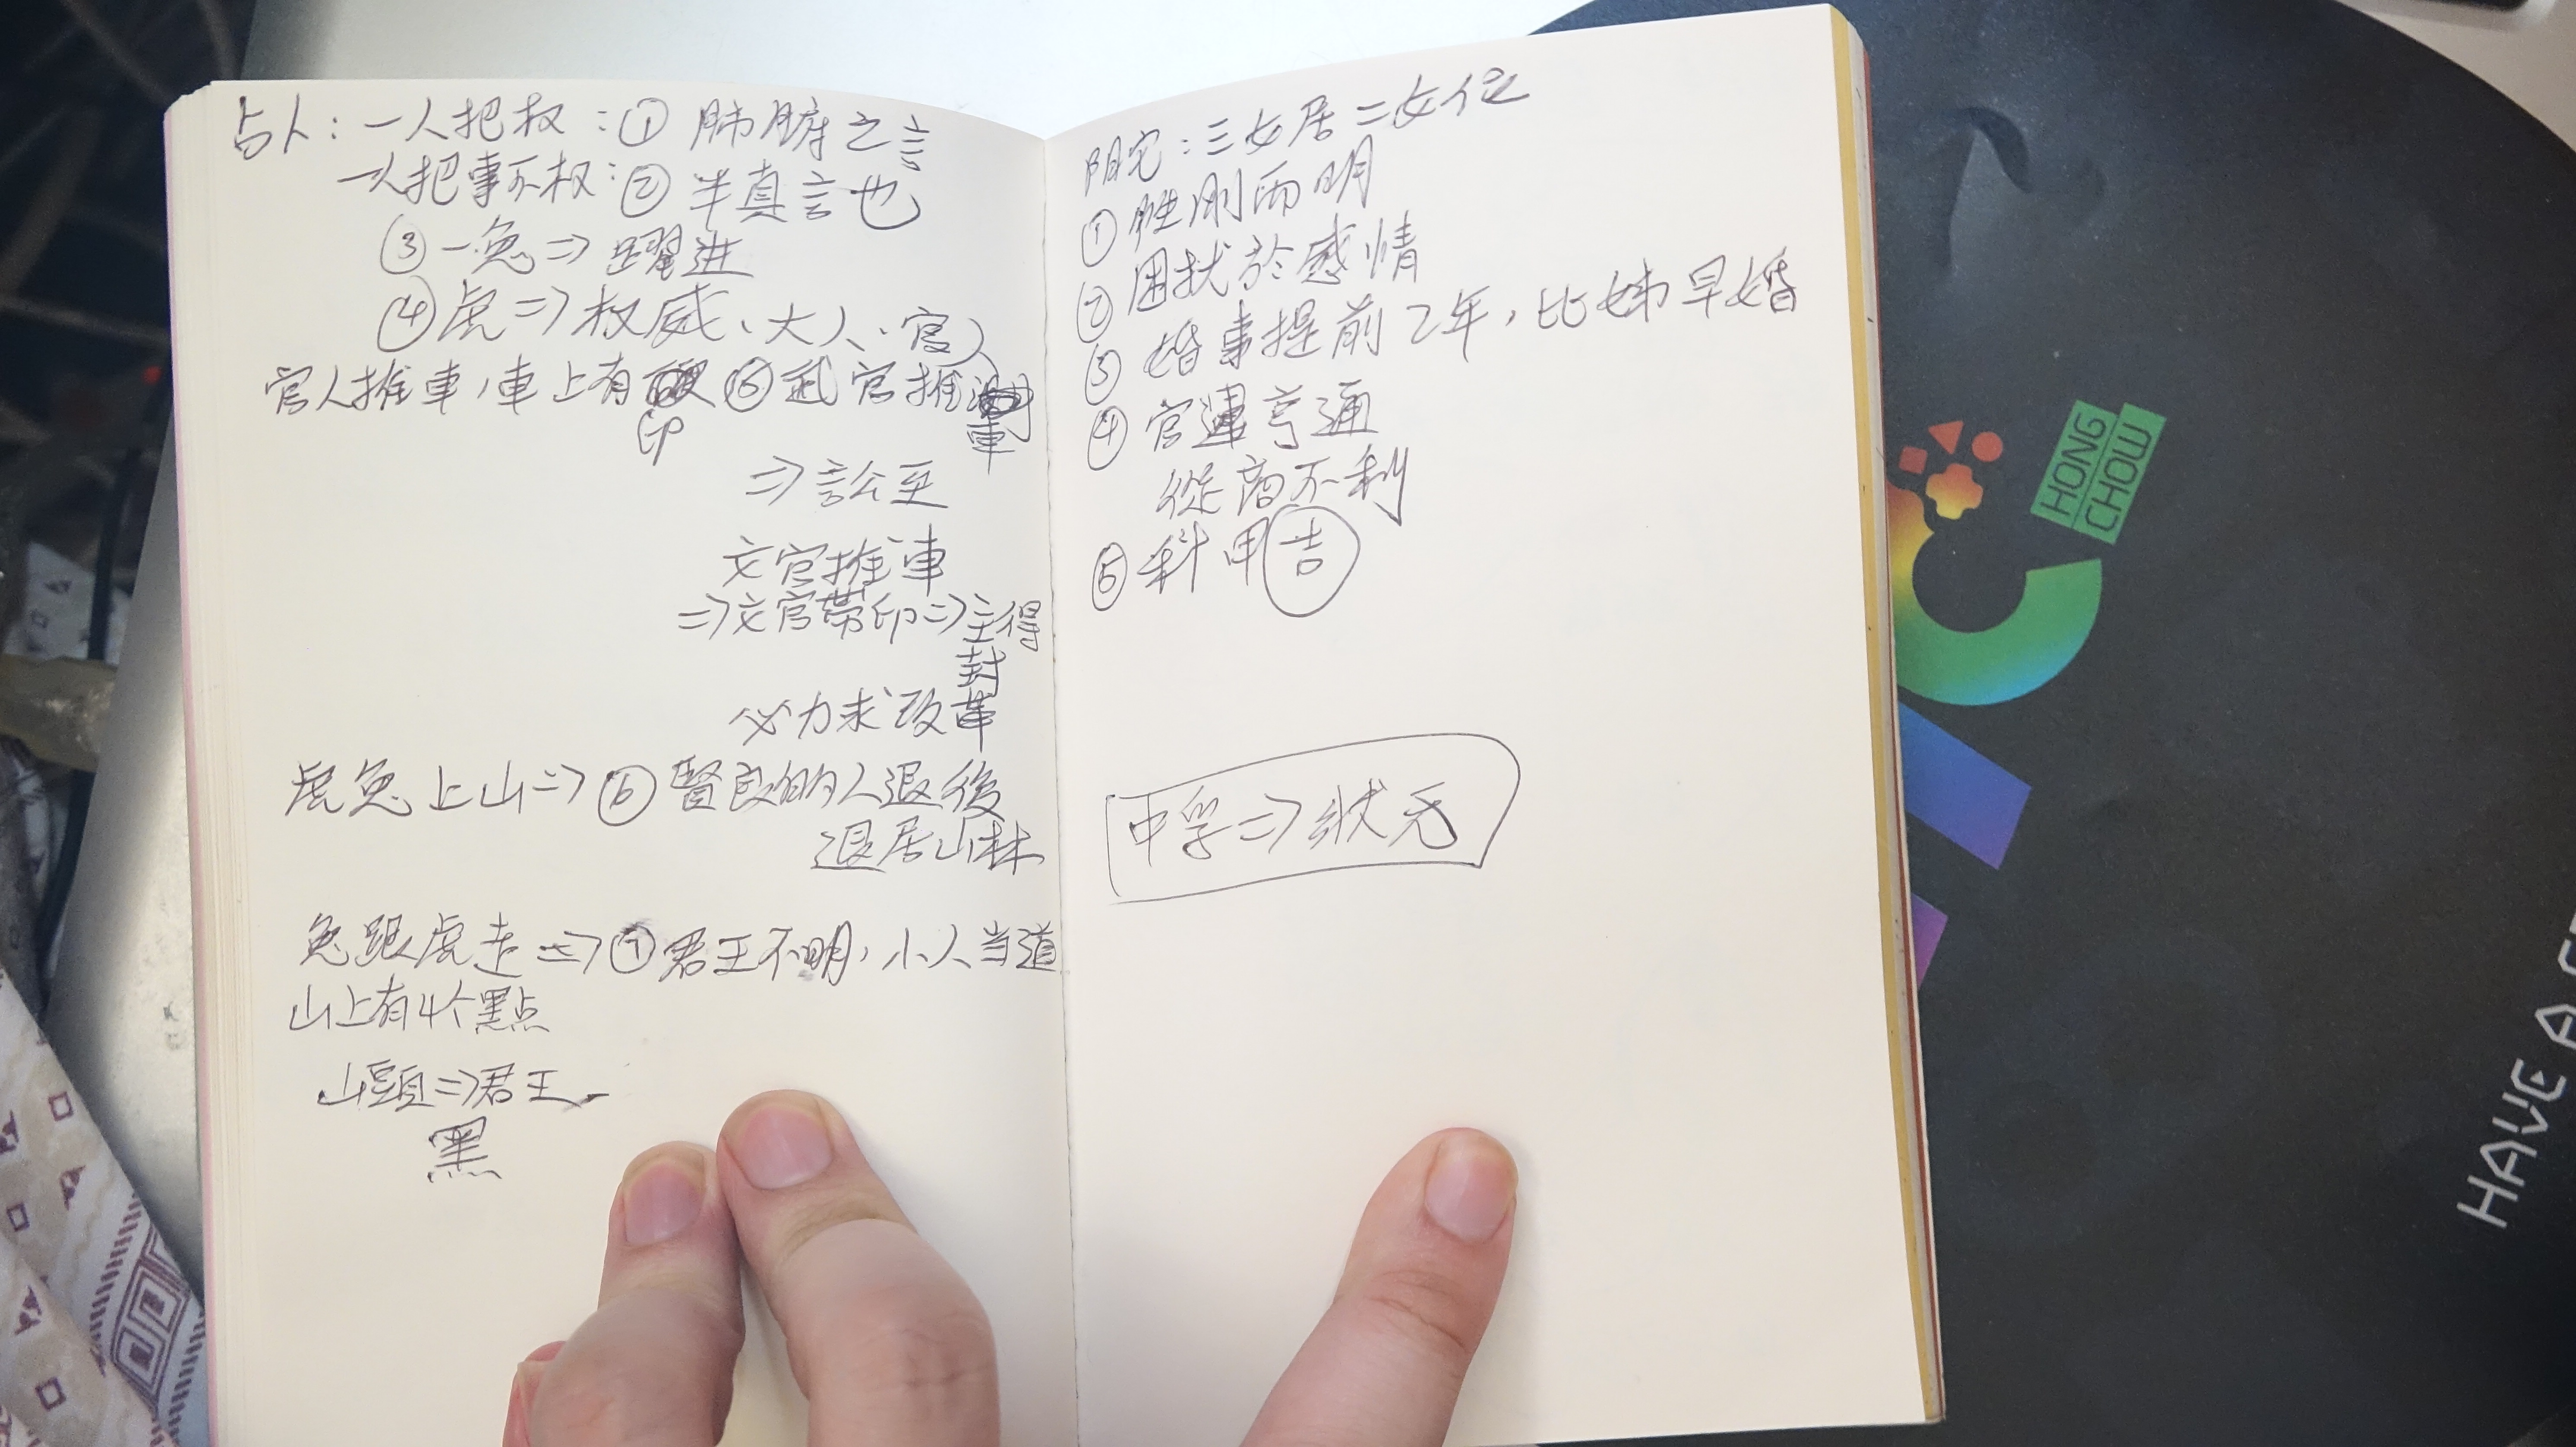 占卜：一人把权：① 肺腑之言
一人把事不权：② 半真言也
③ 一兔⇒躍進
④ 虎⇒权威、大人、官人
官人推車，車上有印 ⑤ 武官推車
⇒言公至
文官推車
⇒文官帶印⇒主得封
必力求改革
虎兔上山⇒⑥ 賢良的人退後
退居山林
兔跟虎走⇒⑦ 君王不明，小人当道
山上有4个黑点
山頭⇒君王
黑
陽宅：三女居二女位
① 性刚而明
② 困扰於感情
③ 婚事提前2年，比姊早婚
④ 官運亨通
從商不利
⑤ 科甲吉
中孚⇒狀元
HONG
CHOW
HAVE A